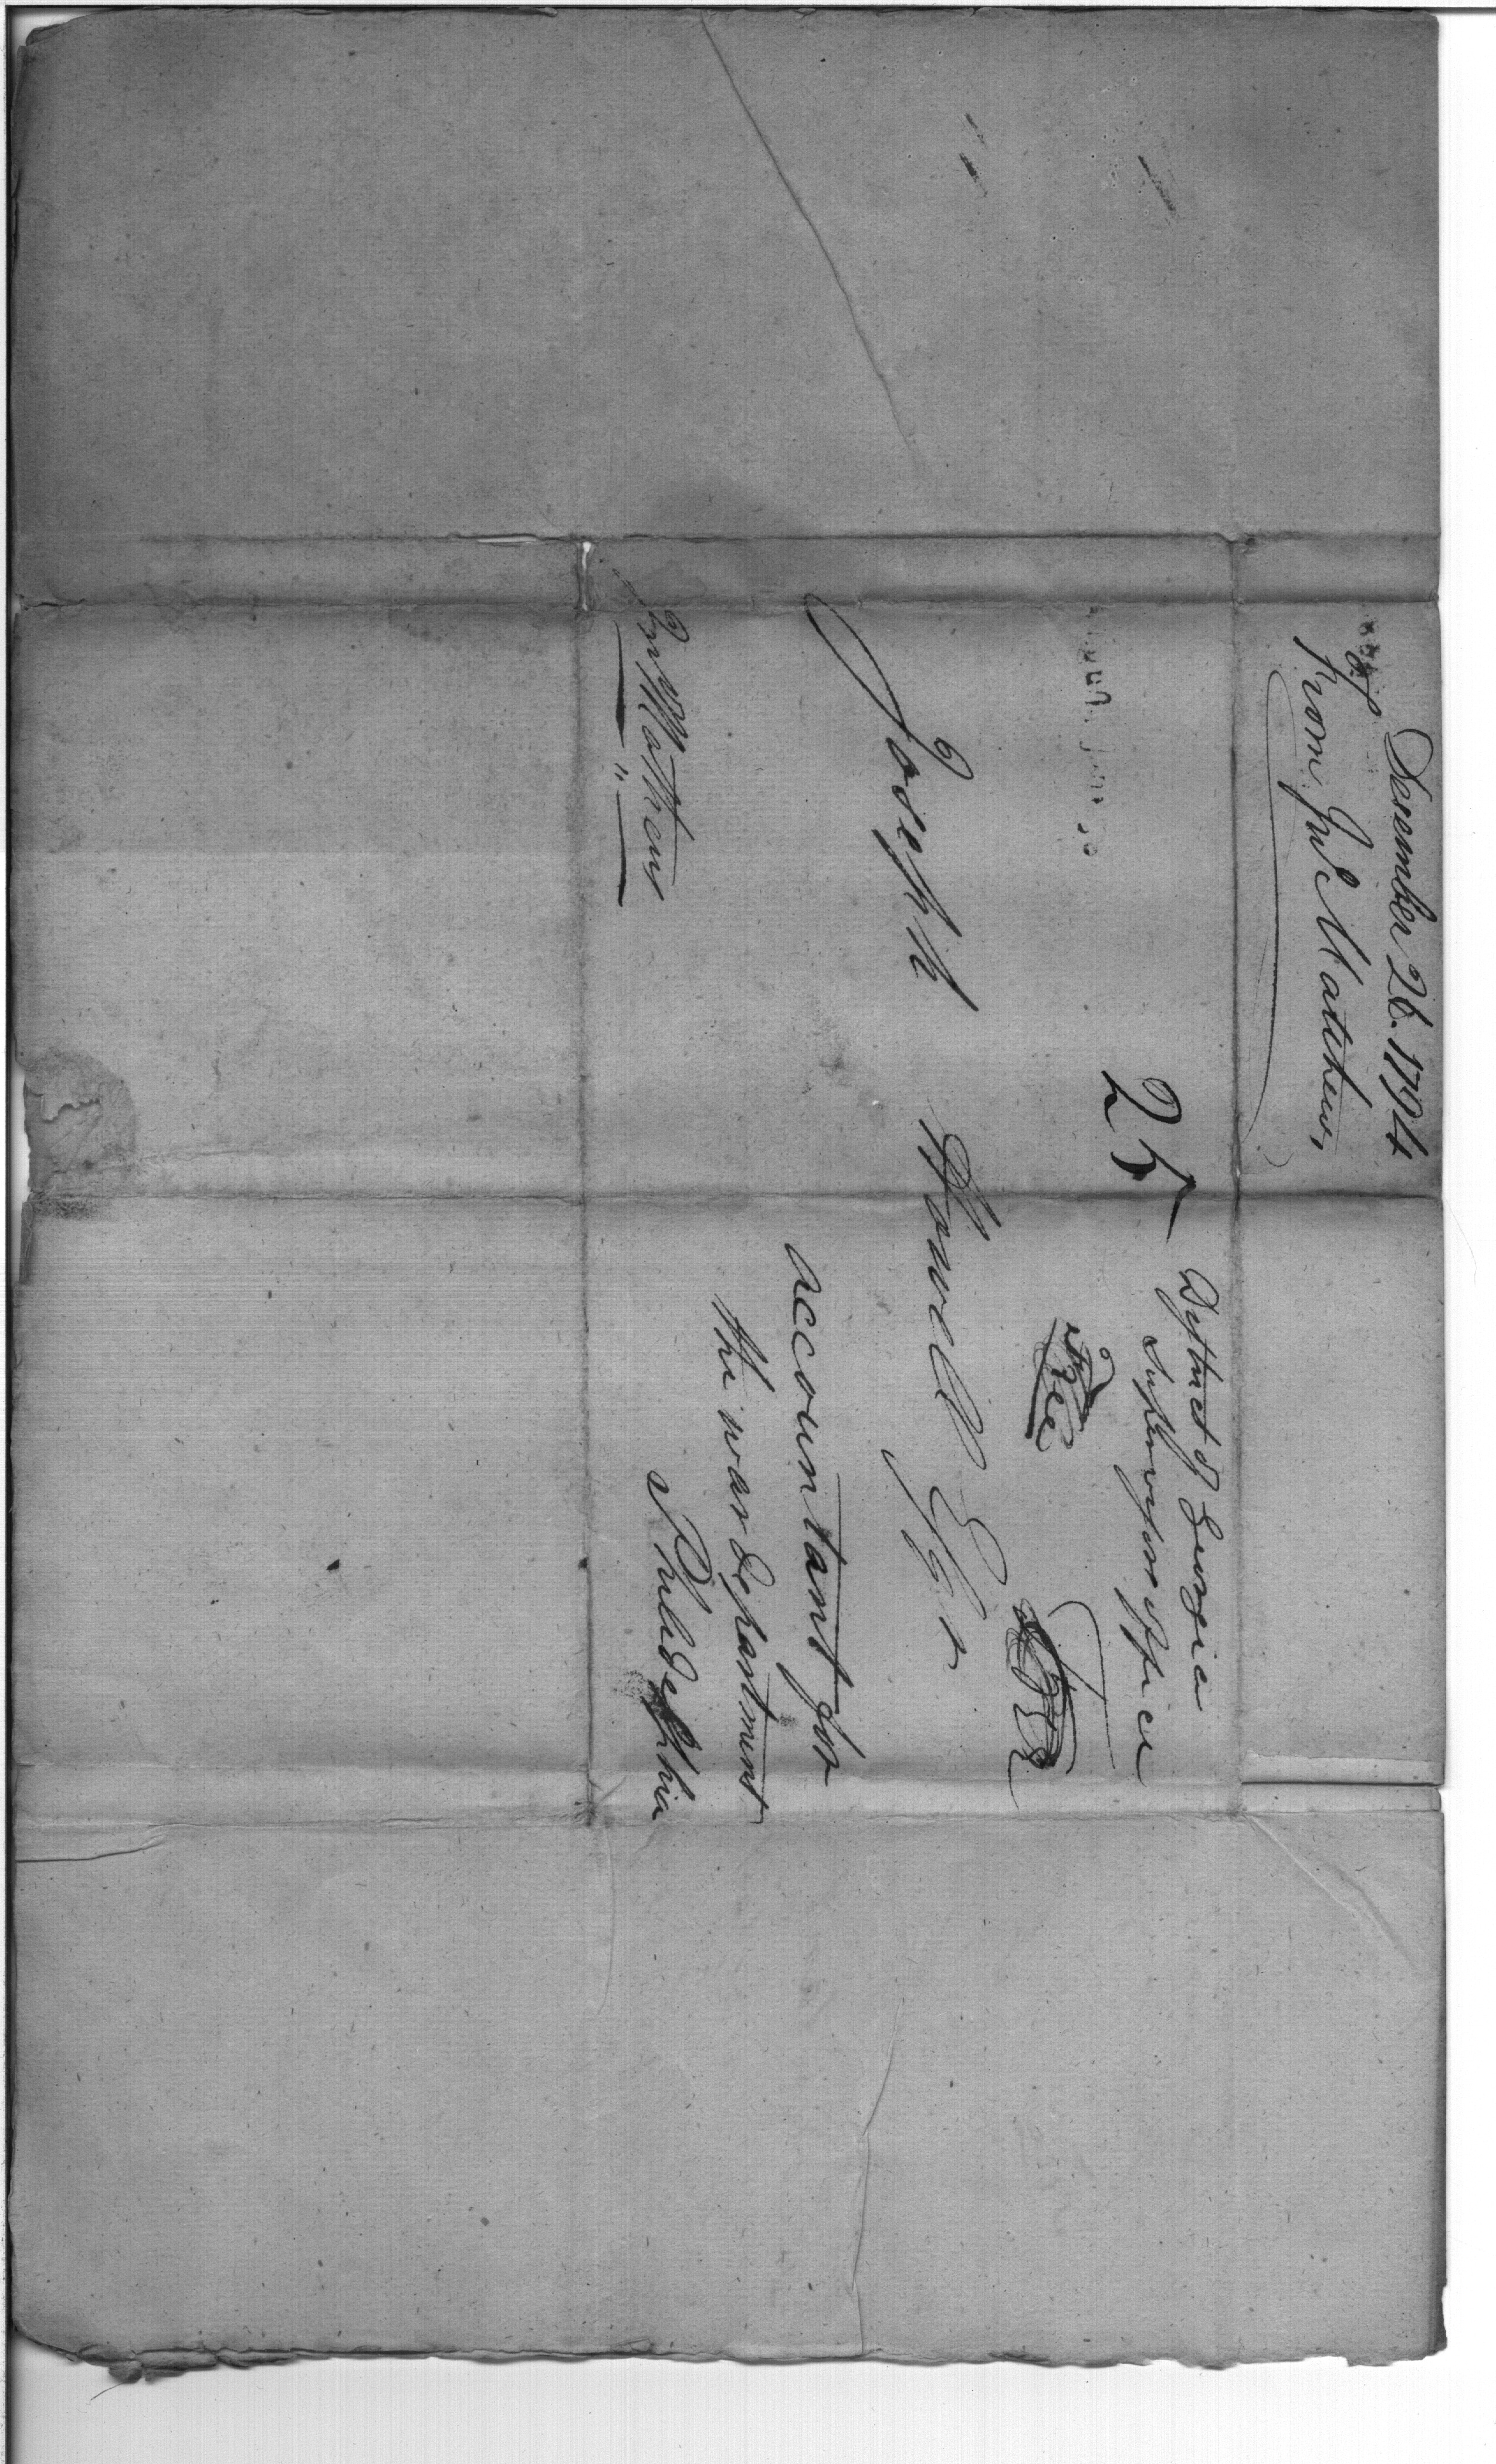 December 26. 1794
From Jno Matthews,
District of Georgia
Supervisors office
25
Free
Joseph Howell Esqr
accountant for
the war department
Philidelphia
Jno Matthews